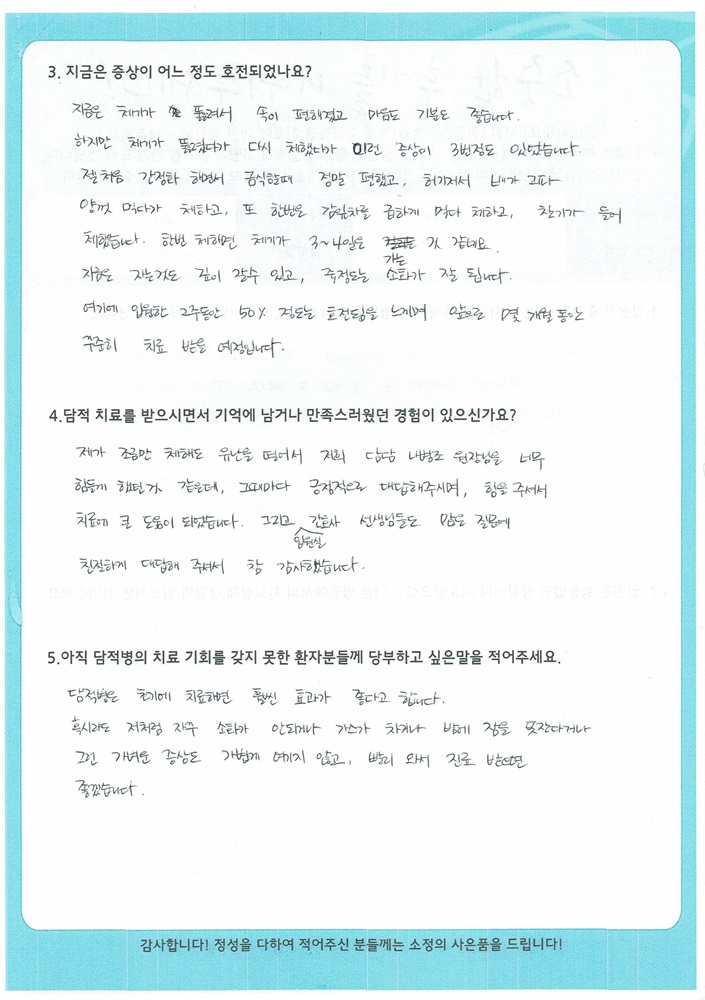 3. 지금은 증상이 어느 정도 호전되었나요?
지금은 체기가 뚫려서 속이 편해졌고 마음도 기분도 좋습니다.
하지만 체기가 뚫렸다가 다시 체했다가 이런 증상이 3번정도 있었습니다.
젤 처음 간정화 하면서 금식할때 정말 편했고, 허기져서 내가 고파
양껏 먹다가 체하고, 또 한번은 감잎차를 급하게 먹다 체하고, 찬기가 들어
체했습니다. 한번 체하면 체기가 3~4일은 가는 것 같네요.
지금은 자는것도 깊이 잘수 있고, 죽정도는 소화가 잘 됩니다.
여기에 입원한 2주동안 50% 정도는 호전됨을 느끼며 앞으로 몇 개월 동안
꾸준히 치료 받을 예정입니다.
4.담적 치료를 받으시면서 기억에 남거나 만족스러웠던 경험이 있으신가요?
제가 조금만 체해도 유난을 떨어서 저희 담당 나병조 원장님을 너무
힘들게 했던것 같은데, 그때마다 긍정적으로 대답해주시며, 힘을 주셔서
치료에 큰 도움이 되었습니다. 그리고 입원실 간호사 선생님들도 많은 질문에
친절하게 대답해 주셔서 참 감사했습니다.
5.아직 담적병의 치료 기회를 갖지 못한 환자분들께 당부하고 싶은말을 적어주세요.
담적병은 초기에 치료하면 훨씬 효과가 좋다고 합니다.
혹시라도 저처럼 자꾸 소화가 안되거나 가스가 차거나 밤에 잠을 못잔다거나
그런 가벼운 증상도 가볍게 여기지 않고, 빨리 와서 진료 받으면
좋겠습니다.
감사합니다! 정성을 다하여 적어주신 분들께는 소정의 사은품을 드립니다!